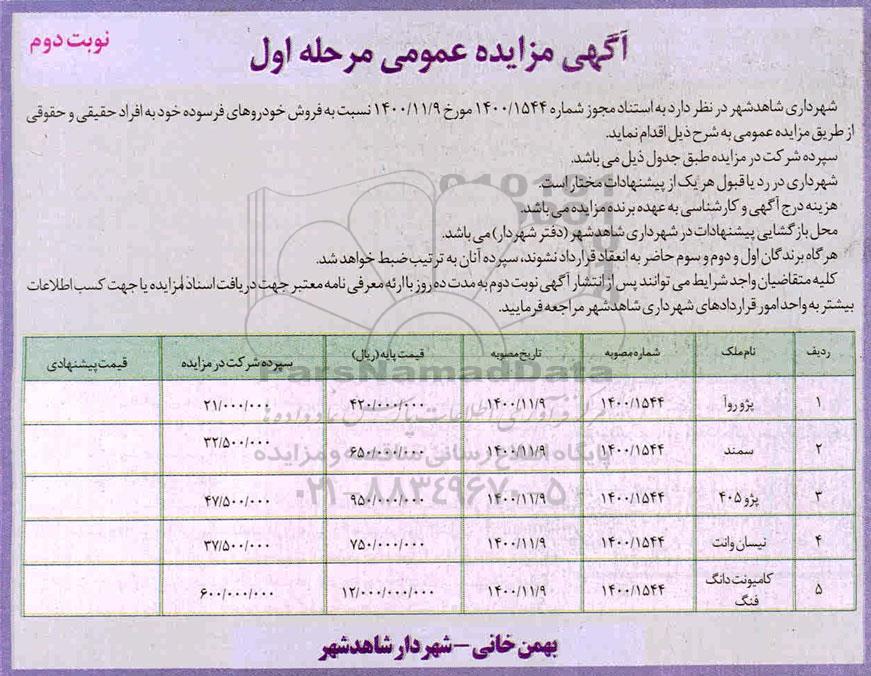 نوبت دوم
آگهی مزایده عمومی مرحله اول
شهرداری شاهدشهر در نظر دارد به استناد مجوز شماره ۱۴۰۰/۱۵۴۴ مورخ ۱۴۰۰/۱۱/۹ نسبت به فروش خودروهای فرسوده خود به افراد حقیقی و حقوقی
از طریق مزایده عمومی به شرح ذیل اقدام نماید.
سپرده شرکت در مزایده طبق جدول ذیل می باشد.
شهرداری در رد یا قبول هر یک از پیشنهادات مختار است.
هزینه درج آگهی و کارشناسی به عهده برنده مزایده می باشد.
محل بازگشایی پیشنهادات در شهرداری شاهدشهر (دفتر شهردار) می باشد.
هرگاه برندگان اول و دوم و سوم حاضر به انعقاد قرارداد نشوند، سپرده آنان به ترتیب ضبط خواهد شد.
کلیه متقاضیان واجد شرایط می توانند پس از انتشار آگهی نوبت دوم به مدت ده روز با ارئه معرفی نامه معتبر جهت دریافت اسناد مزایده یا جهت کسب اطلاعات
بیشتر به واحد امور قراردادهای شهرداری شاهدشهر مراجعه فرمایید.
ردیف نام ملک شماره مصوبه تاریخ مصوبه قیمت پایه (ریال) سپرده شرکت در مزایده قیمت پیشنهادی
۱ پژو روآ ۱۴۰۰/۱۵۴۴ ۱۴۰۰/۱۱/۹ ۴۲۰/۰۰۰/۰۰۰ ۲۱/۰۰۰/۰۰۰
۲ سمند ۱۴۰۰/۱۵۴۴ ۱۴۰۰/۱۱/۹ ۶۵۰/۰۰۰/۰۰۰ ۳۲/۵۰۰/۰۰۰
۳ پژو ۴۰۵ ۱۴۰۰/۱۵۴۴ ۱۴۰۰/۱۱/۹ ۹۵۰/۰۰۰/۰۰۰ ۴۷/۵۰۰/۰۰۰
۴ نیسان وانت ۱۴۰۰/۱۵۴۴ ۱۴۰۰/۱۱/۹ ۷۵۰/۰۰۰/۰۰۰ ۳۷/۵۰۰/۰۰۰
۵ کامیونت دانگ فنگ ۱۴۰۰/۱۵۴۴ ۱۴۰۰/۱۱/۹ ۱۲/۰۰۰/۰۰۰/۰۰۰ ۶۰۰/۰۰۰/۰۰۰
بهمن خانی - شهردار شاهدشهر
ParsNamadData
پایگاه اطلاع رسانی مناقصه و مزایده
۰۲۱-۸۸۳۴۹۶۷۰-۵